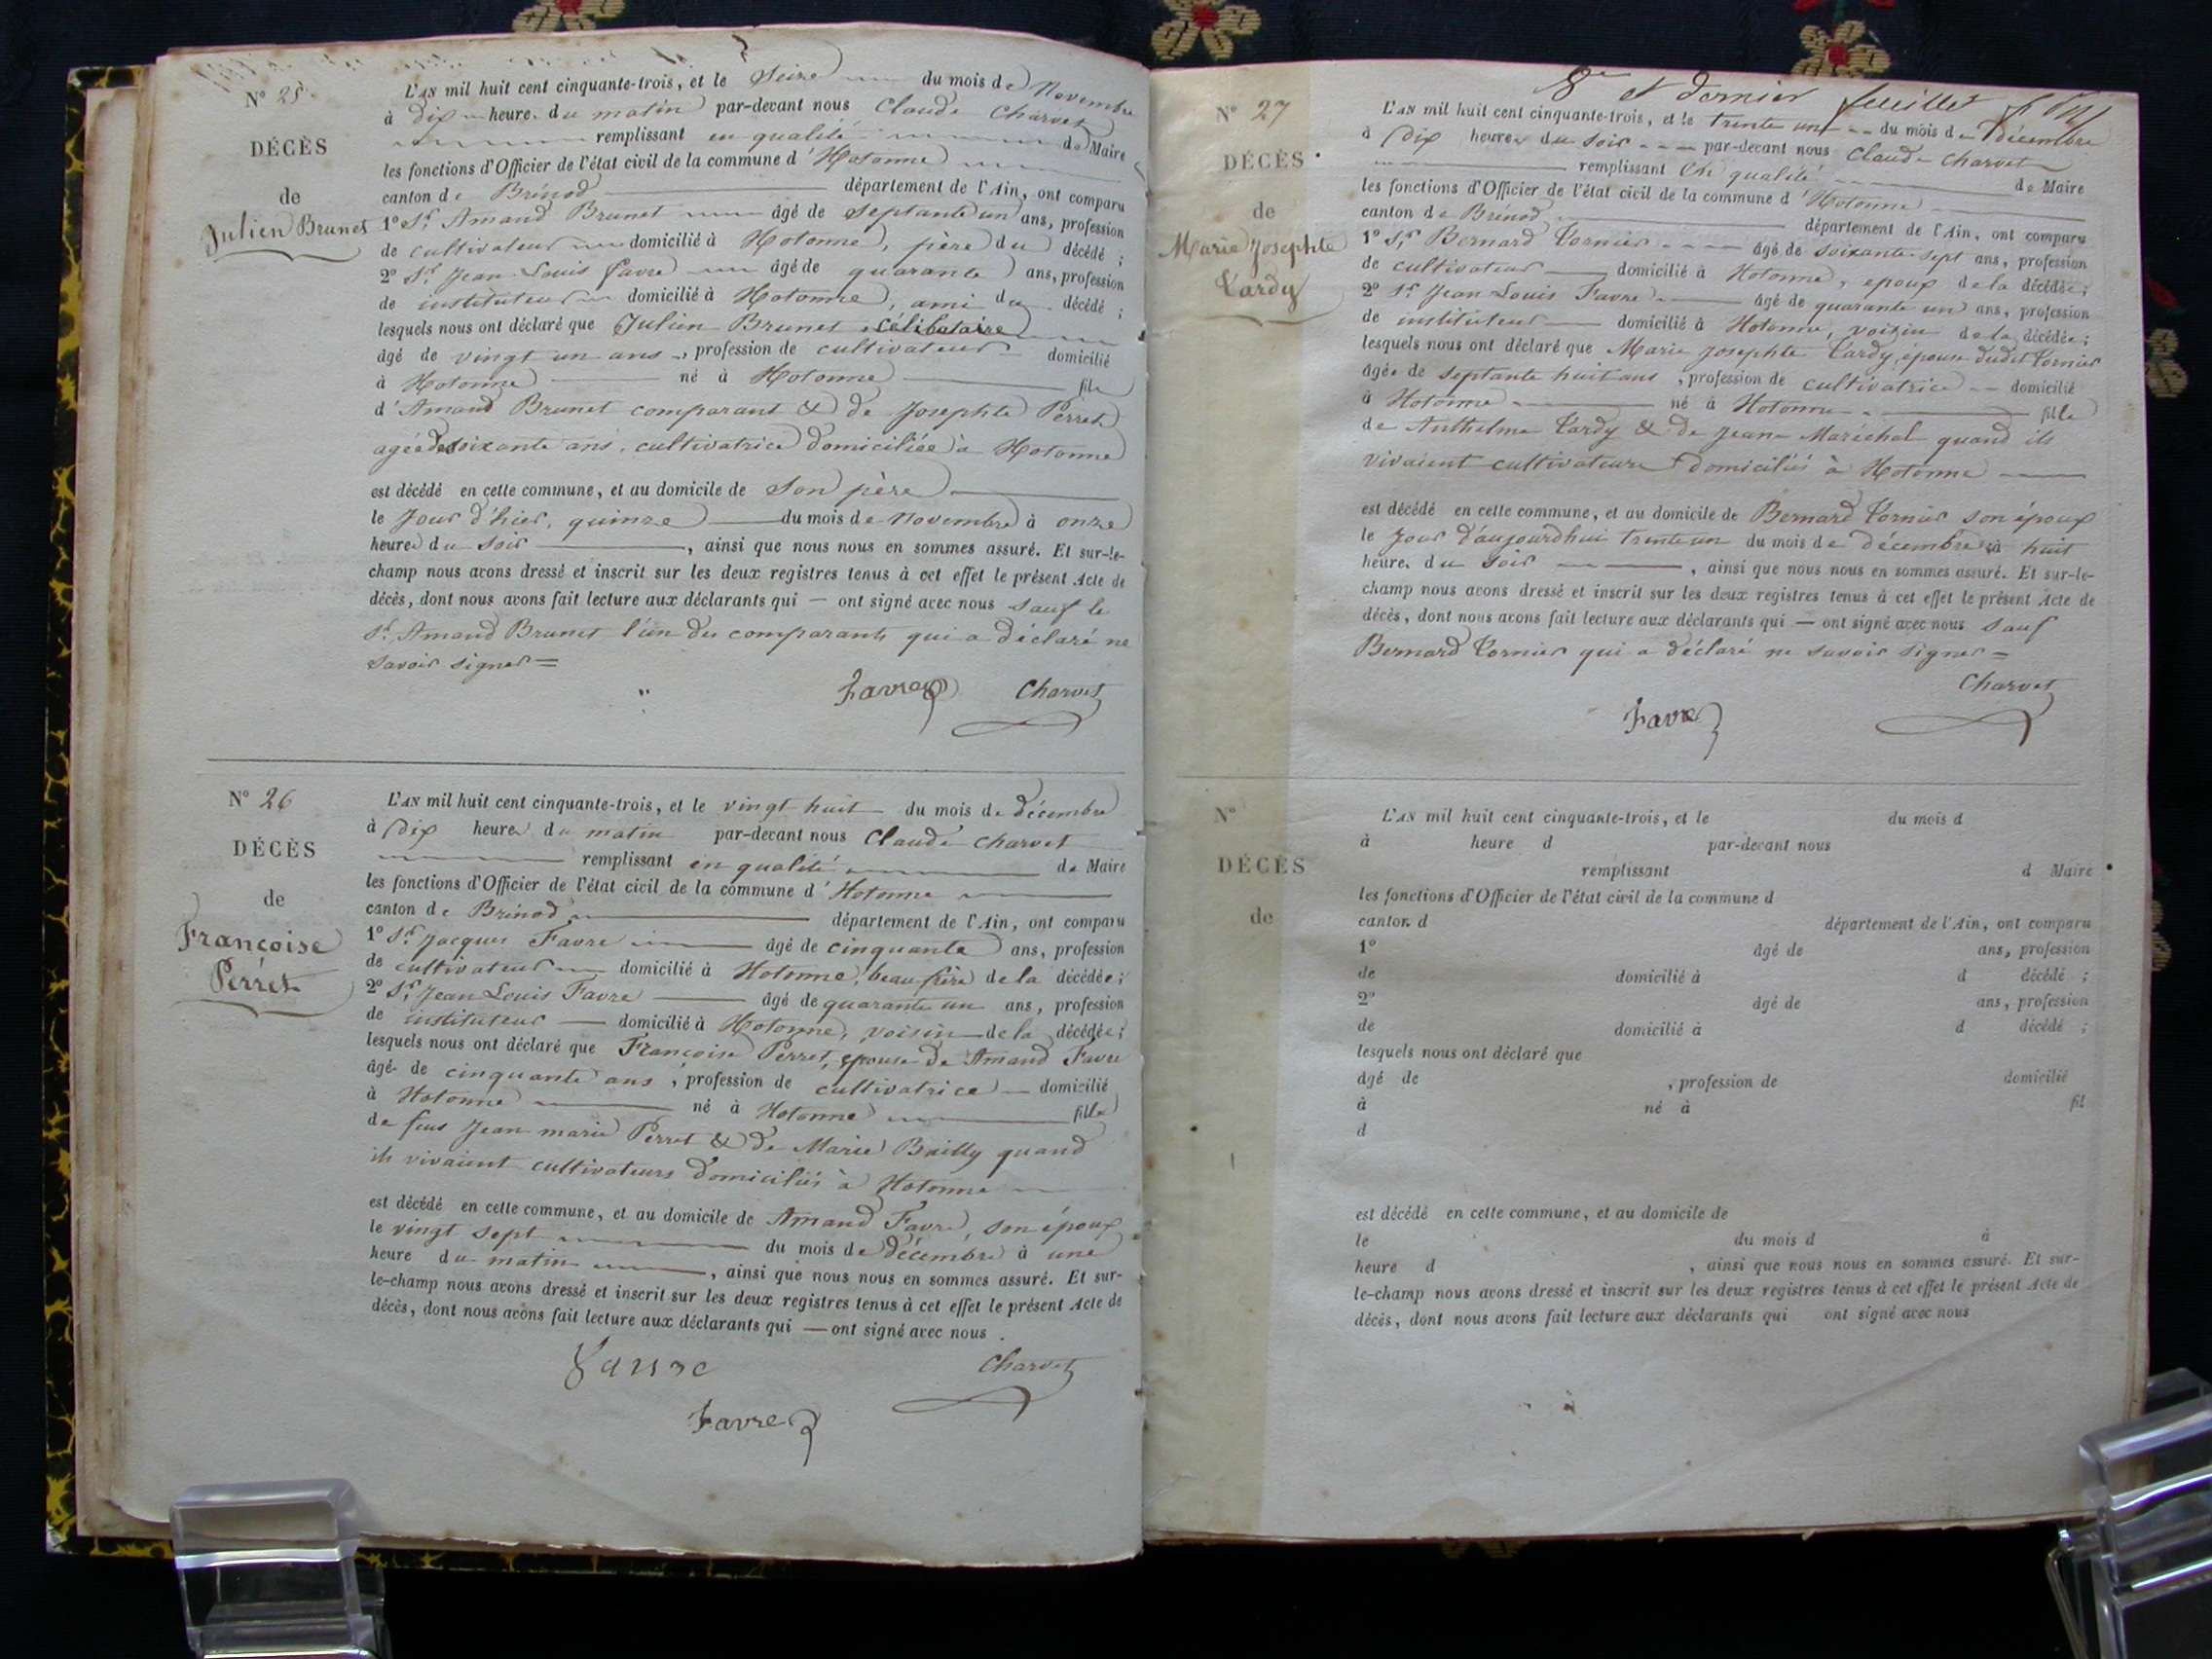 N° 25
DÉCÈS
de
Julien Brunet
L'AN mil huit cent cinquante-trois, et le Seize du mois de Novembre
à dix heure du matin par-devant nous Claude Charvet
remplissant en qualité de Maire
les fonctions d'Officier de l'état civil de la commune d'Hotonne
canton de Brénod département de l'Ain, ont comparu
1° Sr Amand Brunet âgé de septante un ans, profession
de cultivateur domicilié à Hotonne, père du décédé ;
2° Sr Jean Louis favre âgé de quarante ans, profession
de instituteur domicilié à Hotonne, ami du décédé ;
lesquels nous ont déclaré que Julien Brunet célibataire
âgé de vingt un ans, profession de cultivateur domicilié
à Hotonne né à Hotonne fils
d'Amand Brunet comparant & de Josephte Perret
agée de soixante ans, cultivatrice domiciliée à Hotonne
est décédé en cette commune, et au domicile de son père
le jour d'hier, quinze du mois de novembre à onze
heures du soir, ainsi que nous nous en sommes assuré. Et sur-le-
champ nous avons dressé et inscrit sur les deux registres tenus à cet effet le présent Acte de
décès, dont nous avons fait lecture aux déclarants qui — ont signé avec nous sauf le
Sr Amand Brunet l'un des comparants qui a déclaré ne
savoir signer =
Favre Charvet
N° 26
DÉCÈS
de
Françoise
Perret
L'AN mil huit cent cinquante-trois, et le vingt huit du mois de décembre
à dix heures du matin par-devant nous Claude Charvet
remplissant en qualité de Maire
les fonctions d'Officier de l'état civil de la commune d'Hotonne
canton de Brénod département de l'Ain, ont comparu
1° Sr Jacques Favre âgé de cinquante ans, profession
de cultivateur domicilié à Hotonne, beau frère de la décédée ;
2° Sr Jean Louis Favre âgé de quarante un ans, profession
de instituteur — domicilié à Hotonne, voisin de la décédée ;
lesquels nous ont déclaré que Françoise Perret, épouse de Amand Favre
âgée de cinquante ans, profession de cultivatrice domicilié
à Hotonne né à Hotonne fille
de feus Jean marie Perret & de Marie Bailly quand
ils vivaient cultivateurs domiciliés à Hotonne
est décédé en cette commune, et au domicile de Amand Favre, son époux
le vingt sept du mois de décembre à une
heure du matin, ainsi que nous nous en sommes assuré. Et sur-
le-champ nous avons dressé et inscrit sur les deux registres tenus à cet effet le présent Acte de
décès, dont nous avons fait lecture aux déclarants qui — ont signé avec nous.
favre Charvet
Favre
8e et dernier feuillet
N° 27
DÉCÈS
de
Marie Josephte
Tardy
L'AN mil huit cent cinquante-trois, et le trente un du mois de Décembre
à Dix heures du soir par-devant nous Claude Charvet
remplissant en qualité de Maire
les fonctions d'Officier de l'état civil de la commune d'Hotonne
canton de Brénod département de l'Ain, ont comparu
1° Sr Bernard Tornier âgé de soixante-sept ans, profession
de cultivateur domicilié à Hotonne, époux de la décédée ;
2° Sr Jean Louis Favre âgé de quarante un ans, profession
de instituteur domicilié à Hotonne, voisin de la décédée ;
lesquels nous ont déclaré que Marie Josephte Tardy, épouse dudit Tornier
âgée de septante huit ans, profession de cultivatrice domicilié
à Hotonne né à Hotonne fille
de Anthelme Tardy & de Jeane Maréchal quand ils
vivaient cultivateurs domiciliés à Hotonne
est décédé en cette commune, et au domicile de Bernard Tornier son époux
le jour d'aujourdhui trente un du mois de décembre à huit
heure du soir, ainsi que nous nous en sommes assuré. Et sur-le-
champ nous avons dressé et inscrit sur les deux registres tenus à cet effet le présent Acte de
décès, dont nous avons fait lecture aux déclarants qui — ont signé avec nous sauf
Bernard Tornier qui a déclaré ne savoir signer =
Charvet
Favre
N°
DÉCÈS
de
L'AN mil huit cent cinquante-trois, et le du mois d
à heure d par-devant nous
remplissant d Maire
les fonctions d'Officier de l'état civil de la commune d
canton d département de l'Ain, ont comparu
1° âgé de ans, profession
de domicilié à d décédé ;
2° âgé de ans, profession
de domicilié à d décédé ;
lesquels nous ont déclaré que
âgé de , profession de domicilié
à né à fil
d
est décédé en cette commune, et au domicile de
le du mois d à
heure d , ainsi que nous nous en sommes assuré. Et sur-
le-champ nous avons dressé et inscrit sur les deux registres tenus à cet effet le présent Acte de
décès, dont nous avons fait lecture aux déclarants qui ont signé avec nous